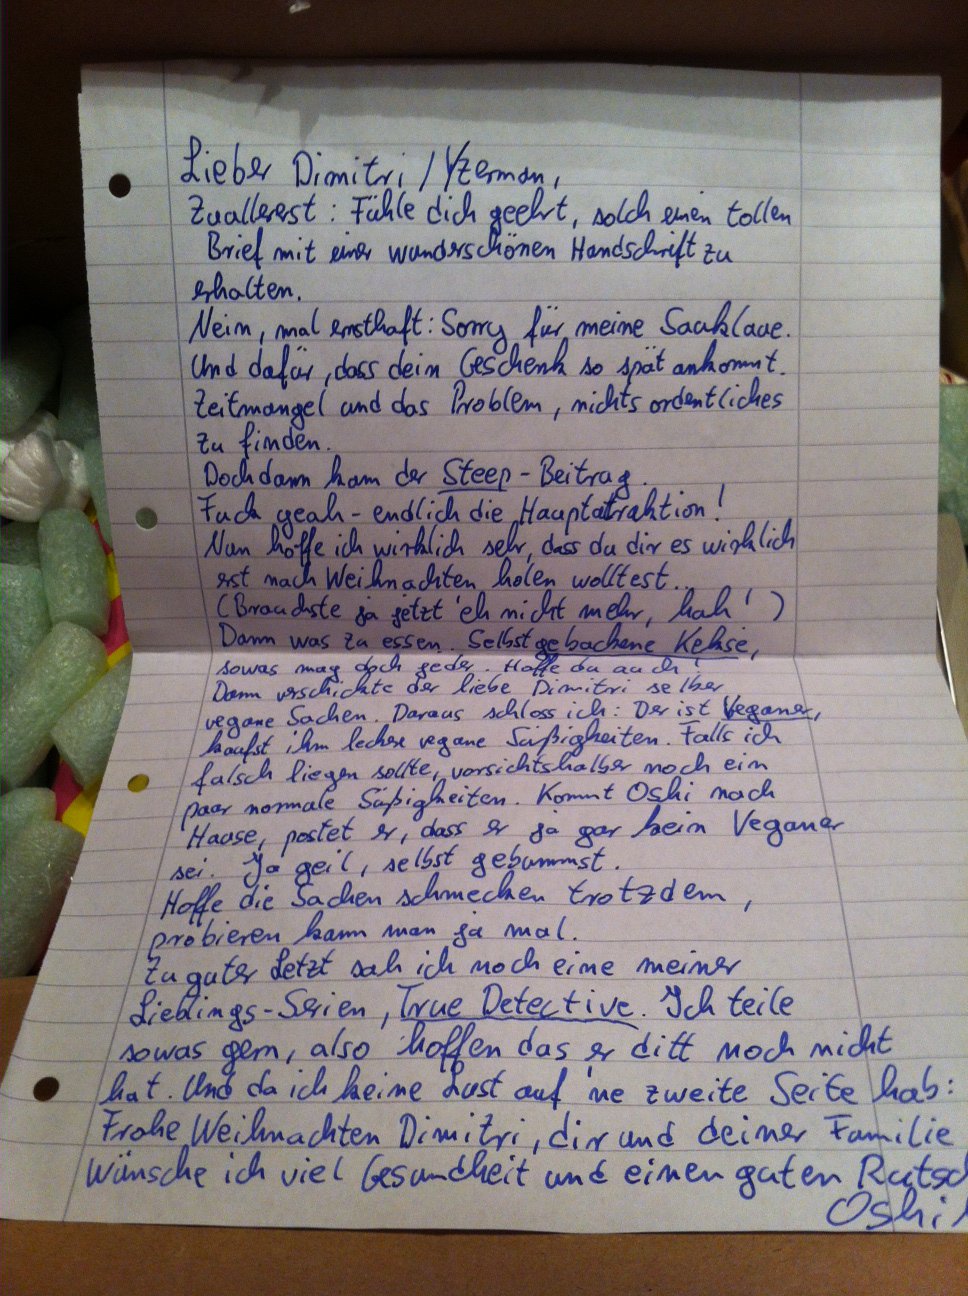 Lieber Dimitri / Yzerman,
Zuallererst: Fühle dich geehrt, solch einen tollen
Brief mit einer wunderschönen Handschrift zu
erhalten.
Nein, mal ernsthaft: Sorry für meine Sauklaue.
Und dafür, dass dein Geschenk so spät ankommt.
Zeitmangel und das Problem, nichts ordentliches
zu finden.
Doch dann kam der Steep-Beitrag.
Fuck yeah - endlich die Hauptatraktion!
Nun hoffe ich wirklich sehr, dass du dir es wirklich
erst nach Weihnachten holen wolltest..
(Brauchste ja jetzt 'eh nicht mehr, hah!)
Dann was zu essen. Selbstgebackene Kekse,
sowas mag doch jeder. Hoffe du auch!
Dann verschickte der liebe Dimitri selber
vegane Sachen. Daraus schloss ich: Der ist Veganer,
kaufst ihm leckere vegane Süßigkeiten. Falls ich
falsch liegen sollte, vorsichtshalber noch ein
paar normale Süßigkeiten. Kommt Oshi nach
Hause, postet er, dass er ja gar kein Veganer
sei. Ja geil, selbst gebummst.
Hoffe die Sachen schmecken trotzdem,
probieren kann man ja mal.
Zu guter Letzt sah ich noch eine meiner
Lieblings-Serien, True Detective. Ich teile
sowas gern, also hoffen das er ditt noch nicht
hat. Und da ich keine Lust auf 'ne zweite Seite hab:
Frohe Weihnachten Dimitri, dir und deiner Familie
wünsche ich viel Gesundheit und einen guten Rutsch
Oshi